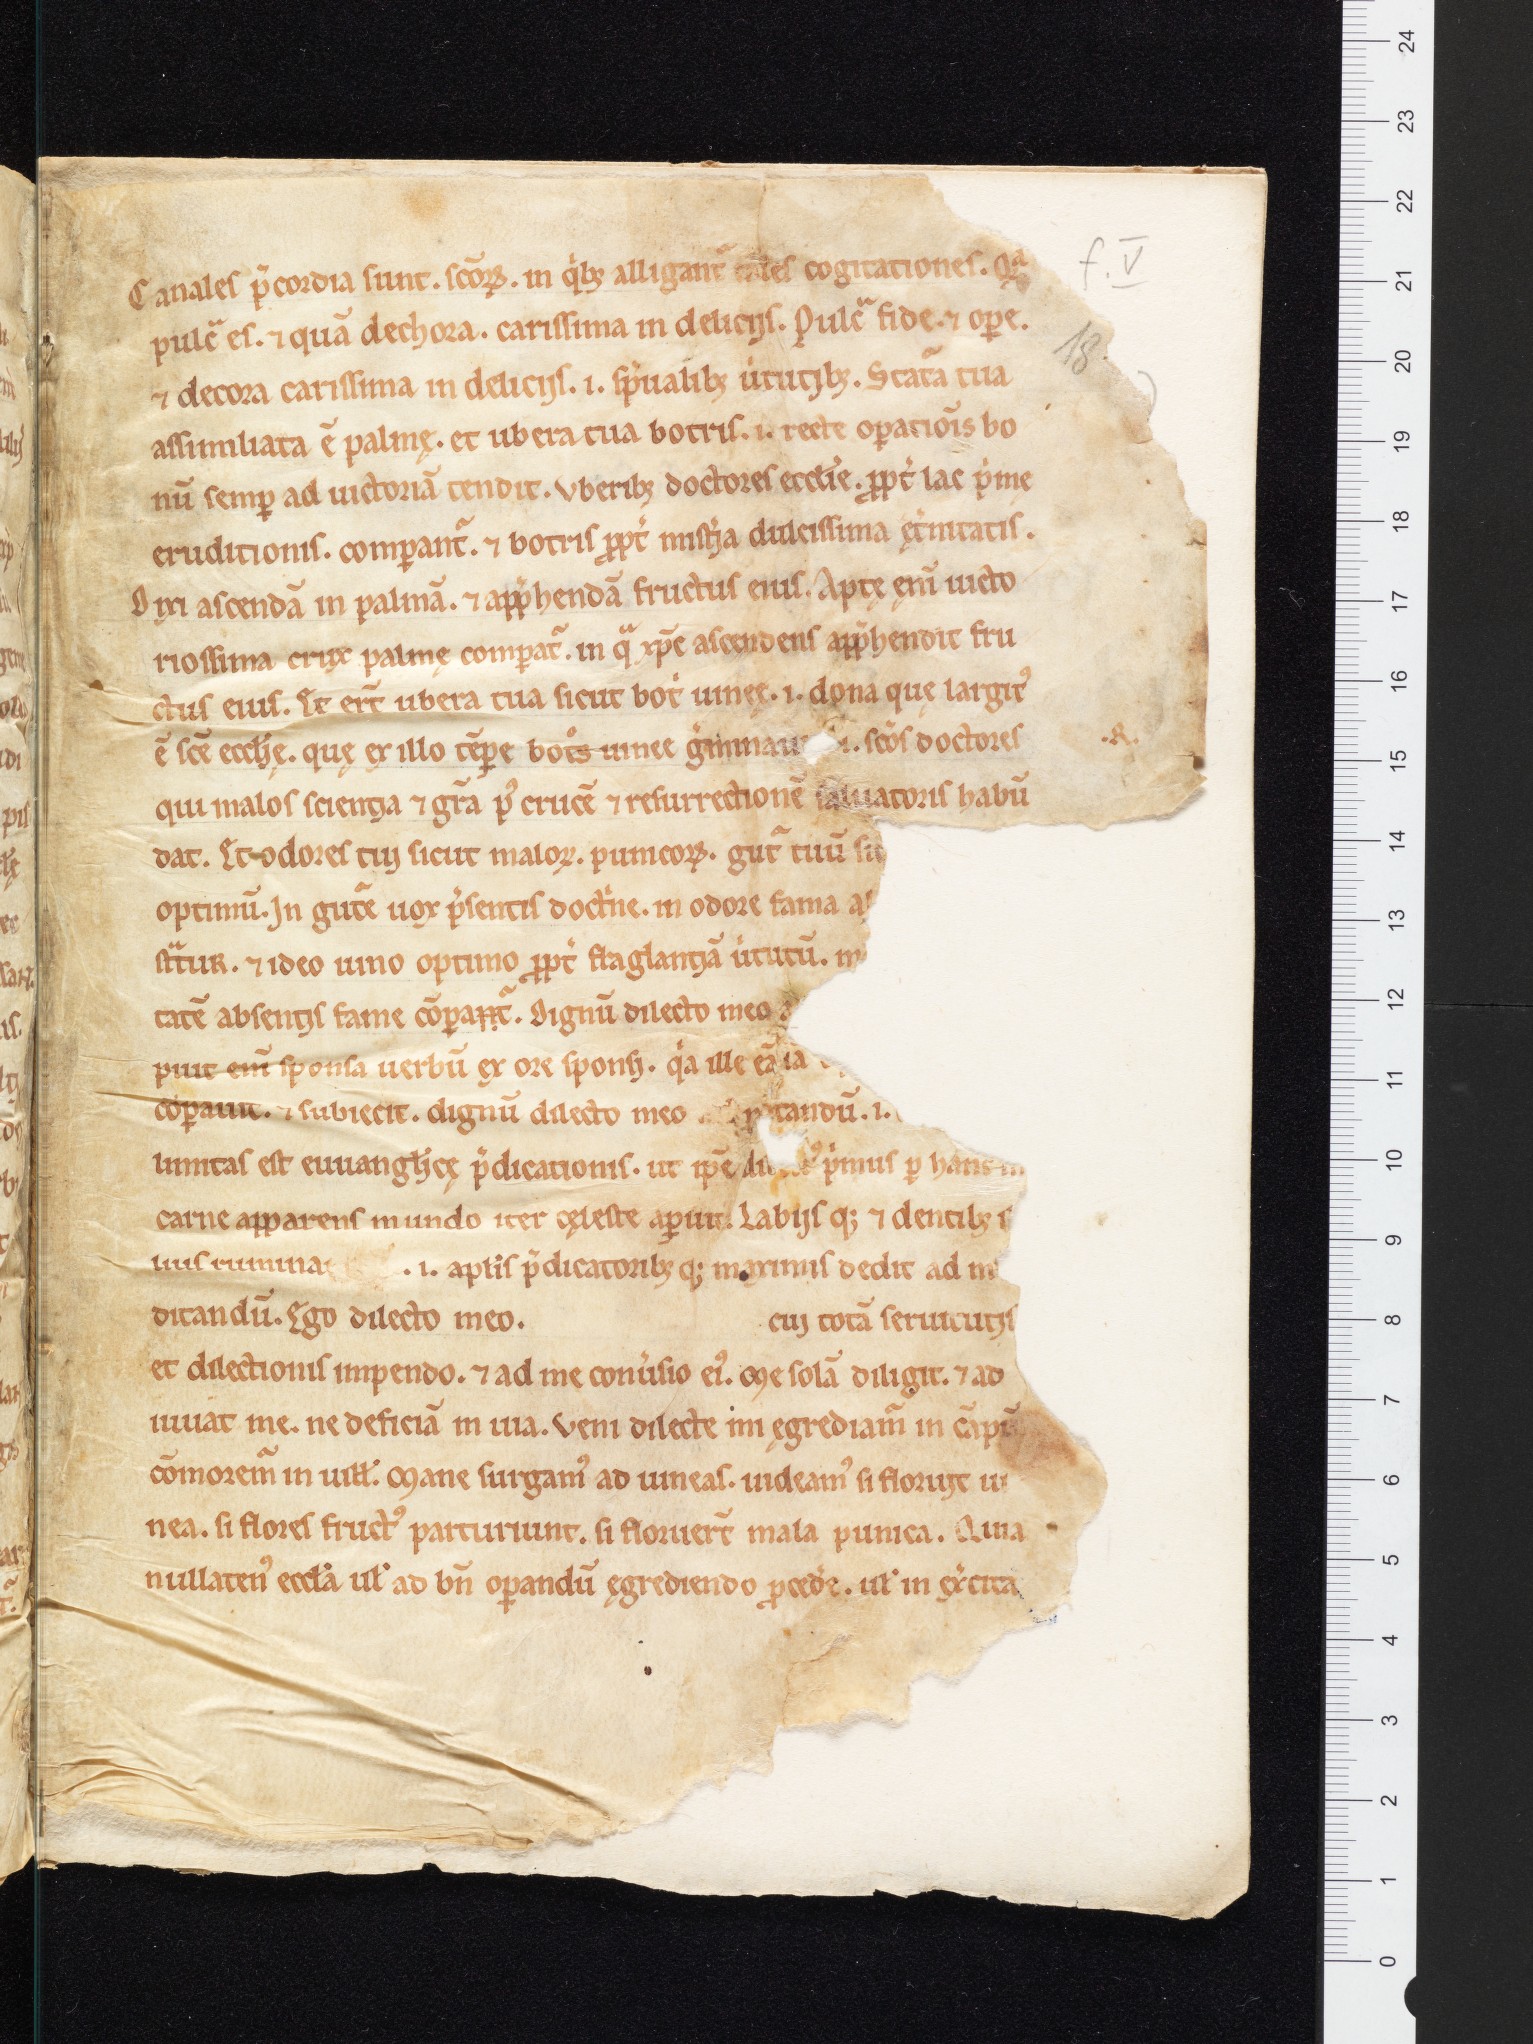 f. V
Canales p̃cordia sunt. scõꝝ. in q̍bꝫ alligant᷑ tales cogitationes. Qͣ
18
pulcͣ es. ⁊ quã dechora. carissima in deliciis. Pulcͣ fide. ⁊ oꝑe.
⁊ decora carissima in deliciis. i. sp̃ualibꝫ u̍tutibꝫ. Statͣa tua
assimiliata ẽ palmę. et ubera tua botris. i. recte oꝑatiõis bo
nũ semꝑ ad uictoriã tendit. Vberibꝫ doctores eccl̃ie. ꝓpt̍ lac p̍mę
eruditionis. comꝑant᷑. ⁊ botris ꝓpt̍ mist̍ia dulcissima ęt̍nitatis.
Dixi ascendã in palmã. ⁊ app̍hendã fructus eius. Aptę em̃ uicto
riosissima crux palmę comꝑat᷑. in qͣ xp̃c ascendens app̍hendit fru
ctus eius. Et ert̃ ubera tua sicut bot̍ uineę. i. dona quę largitꝰ
ẽ scẽ eccl̃ię. quę ex illo tẽꝑe botͦs uinee g̍minau i. scõs doctores
.R.
qui malos scientia ⁊ gr̃a pꝰ crucẽ ⁊ resurrectionẽ saluatoris habũ
dat. Et odores tui sicut maloꝝ. punicoꝝ. gut᷑ tuũ sic
optimũ. In gut᷑e uox p̍sentis doct̍ne. in odore fama a
st̃atur. ⁊ ideo uino optimo ꝓpt̍ flaglantiã u̍tutũ. m
tatẽ absentis fame cõparat᷑. Dignũ dilecto meo
piut em̃ sponsa uerbũ ex ore sponsi. q̍a ille eã ia
coꝑauit. ⁊ subiecit. dignũ dilecto meo tandũ. i.
limitas est euuangl̃icę p̍dicationis. ut ip̃e p̍mus ꝑ hanc in
carne apparens mundo iter cęleste aꝑuit. Labiis qꝫ ⁊ dentibꝫ
lius rumina . i. aptis p̍dicatoribꝫ qꝫ maximis dedit ad m
ditandũ. Ego dilecto meo. cui totã seruitutis
et dilectionis impendo. ⁊ ad me conu̍sio eiꝰ. Me solã diligit. ⁊ ad
iuuat me. ne deficiã in uia. Veni dilecte mi ęgrediam᷑ in cãpũ
cõmorem᷑ in uill̍. Mane surgamꝰ ad uineas. uideamꝰ si floruit ui
nea. si flores fructꝰ parturiunt. si floruert̃ mala punica. Quia
nullatenꝰ eccl̃a ul̍ ad bñ oꝑandũ ęgrediendo ꝓced̍e. ul̍ in ex̍cita